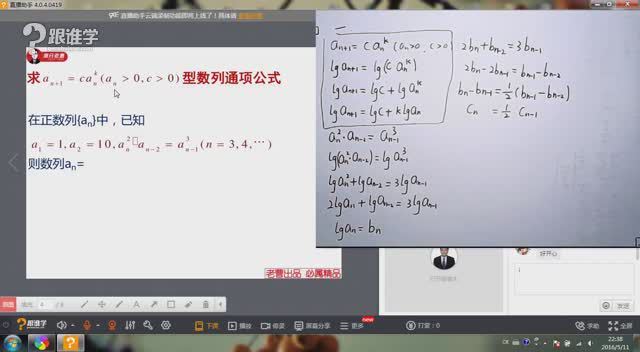 直播助手 4.0.4.0419
直播助手云端录制功能即将上线了!具体请
跟谁学
求 a_{n+1} = ca_n^k (a_n > 0, c > 0) 型数列通项公式
在正数列{a_n}中，已知
a_1 = 1, a_2 = 10, a_n^2 □ a_{n-2} = a_{n-1}^3 (n = 3, 4, ⋯)
则数列a_n=
老曹出品 必属精品
a_{n+1} = c a_n^k (a_n>0, c>0)
lg a_{n+1} = lg(c a_n^k)
lg a_{n+1} = lg c + lg a_n^k
lg a_{n+1} = lg c + k lg a_n
a_n^2 · a_{n-2} = a_{n-1}^3
lg(a_n^2 · a_{n-2}) = lg a_{n-1}^3
lg a_n^2 + lg a_{n-2} = 3 lg a_{n-1}
2 lg a_{n} + lg a_{n-2} = 3 lg a_{n-1}
lg a_n = b_n
2b_n + b_{n-2} = 3b_{n-1}
2b_n - 2b_{n-1} = b_{n-1} - b_{n-2}
b_n - b_{n-1} = 1/2 (b_{n-1} - b_{n-2})
c_n = 1/2 c_{n-1}
好开心
跟谁学
下课
播放
停录
屏幕分享
更多
new
打赏: 0
助手
设置
全屏
22:38
2016/5/11